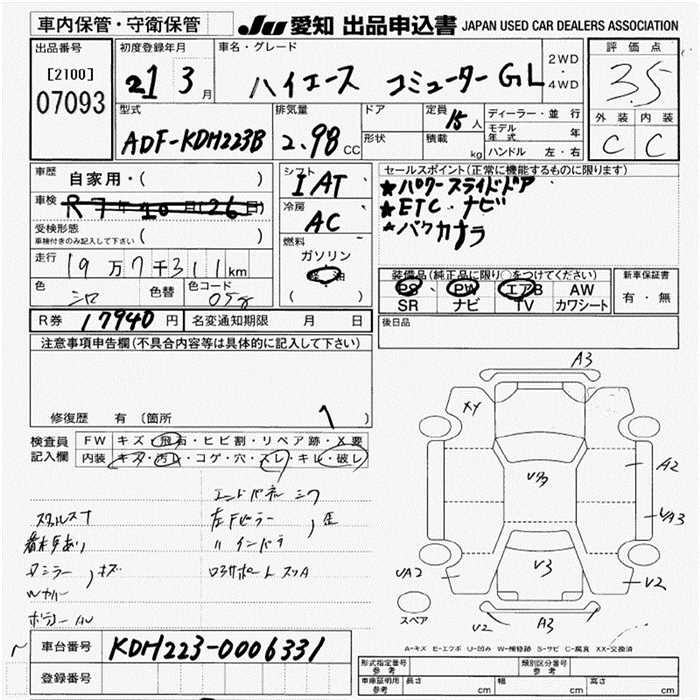 車内保管・守衛保管
JU 愛知 出品申込書 JAPAN USED CAR DEALERS ASSOCIATION
出品番号
[2100]
07093
初度登録年月
21 3 月
車名・グレード
ハイエース コミューター GL
2WD
・
4WD
評価点
3.5
外装 内装
C C
型式
ADF-KDH223B
排気量
2.98 CC
ドア
形状
定員 15 人
積載 kg
ディーラー・並行
モデル年式 年
ハンドル 左・右
車歴 自家用・( )
車検 R7年10月(26日)
受検形態
車検付きのみ記入して下さい ( )
走行 19万7千311km
色 シロ 色替 色コード 058
シフト
IAT
冷房
AC
燃料
ガソリン
軽油
( )
セールスポイント(正常に機能するものに限ります)
★パワースライドドア
★ETC・ナビ
★バックカメラ
装備品(純正品に限り○をつけてください)
PS PW エアB AW
SR ナビ TV カワシート
新車保証書
有・無
R券 17940 円 名変通知期限 月 日
後日品
注意事項申告欄(不具合内容等は具体的に記入して下さい)
修復歴 有 (箇所 )
検査員記入欄
FW キズ・飛石・ヒビ割・リペア跡・X要
内装 キズ・汚レ・コゲ・穴・スレ・キレ・破レ
エンドパネル
左Fピラー
〃インパネ
キズ
A3
XY
V3
A2
UA3
UA2
V3
V2
V2
A3
スペア
A-キズ E-エクボ U-凹み W-補修跡 S-サビ C-腐食 XX-交換済
車台番号 KDH223-0006331
登録番号
形式指定番号 参考
類別区分番号 参考
車庫証明用 参考 長さ cm 幅 cm 高さ cm